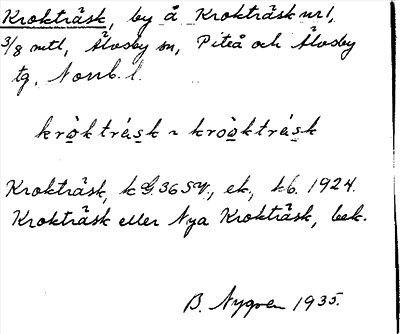 Krokträsk, by å Krokträsk nr 1,
3/8 mtl, Älvsby sn, Piteå och Älvsby
tg. Norrb. l.
kròkträsk ~ kròoktråsk
Krokträsk, k G. 36 SV., ek., kb. 1924.
Krokträsk eller Nya Krokträsk, bek.
B. Nygren 1935.